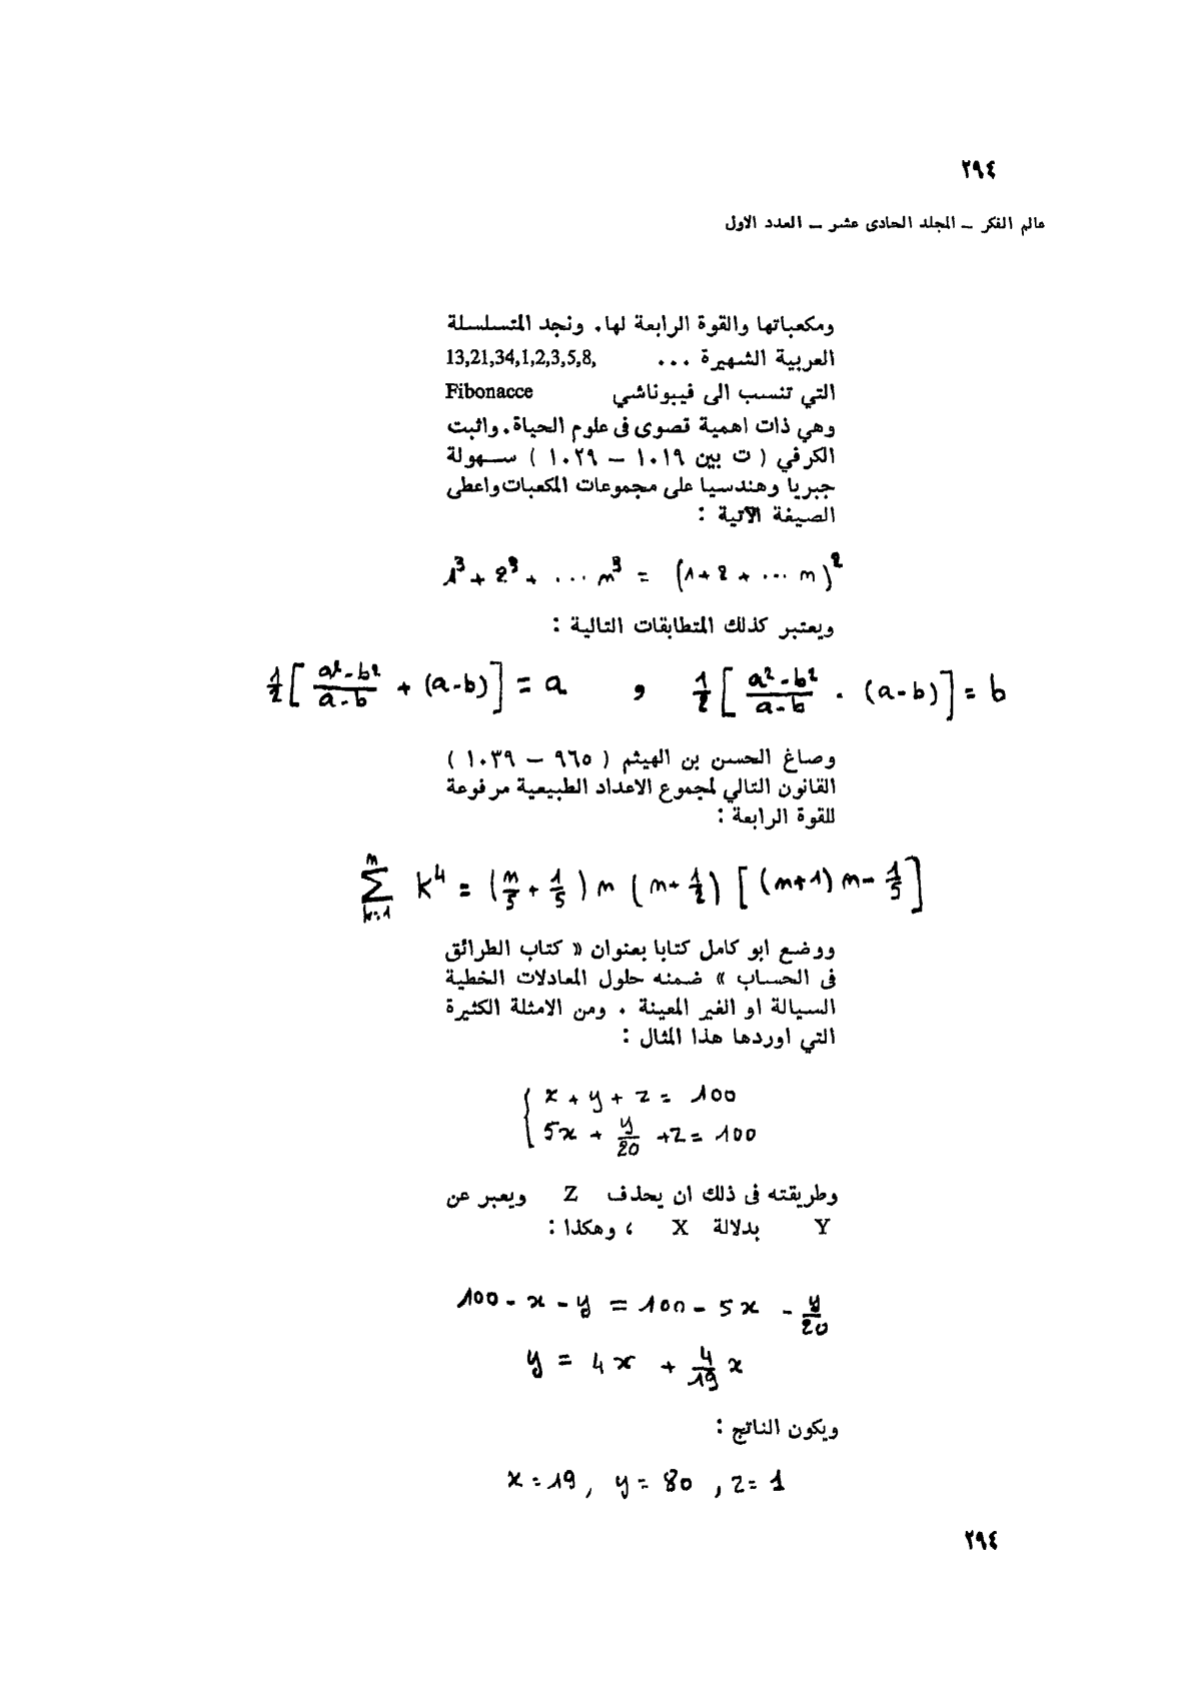 ٢٩٤
عالم الفكر ــ المجلد الحادى عشر ــ العدد الاول
ومكعباتها والقوة الرابعة لها. ونجد المتسلسلة
العربية الشهيرة ... 13,21,34,1,2,3,5,8,
التي تنسب الى فيبوناشي Fibonacce
وهي ذات اهمية قصوى فى علوم الحياة. واثبت
الكرفي ( ت بين ١٠١٩ – ١٠٢٩ ) سهولة
جبريا وهندسيا على مجموعات المكعبات واعطى
الصيغة الآتية :
1³ + 2³ + ... m³ = (1 + 2 + ... m)²
ويعتبر كذلك المتطابقات التالية :
½[(a²-b²)/(a-b) + (a-b)] = a , ½[(a²-b²)/(a-b) - (a-b)] = b
وصاغ الحسن بن الهيثم ( ٩٦٥ – ١٠٣٩ )
القانون التالي لمجموع الاعداد الطبيعية مرفوعة
للقوة الرابعة :
∑_{k=1}^{n} k⁴ = (n/5 + 1/5) n (n + 1/2) [(n+1) n - 1/5]
ووضع ابو كامل كتابا بعنوان « كتاب الطرائق
فى الحساب » ضمنه حلول المعادلات الخطية
السيالة او الغير المعينة . ومن الامثلة الكثيرة
التي اوردها هذا المثال :
{ x + y + z = 100
5x + y/20 + z = 100
وطريقته فى ذلك ان يحذف Z ويعبر عن
Y بدلالة X ، وهكذا :
100 - x - y = 100 - 5x - y/20
y = 4x + 4/19 x
ويكون الناتج :
x = 19, y = 80, z = 1
٢٩٤